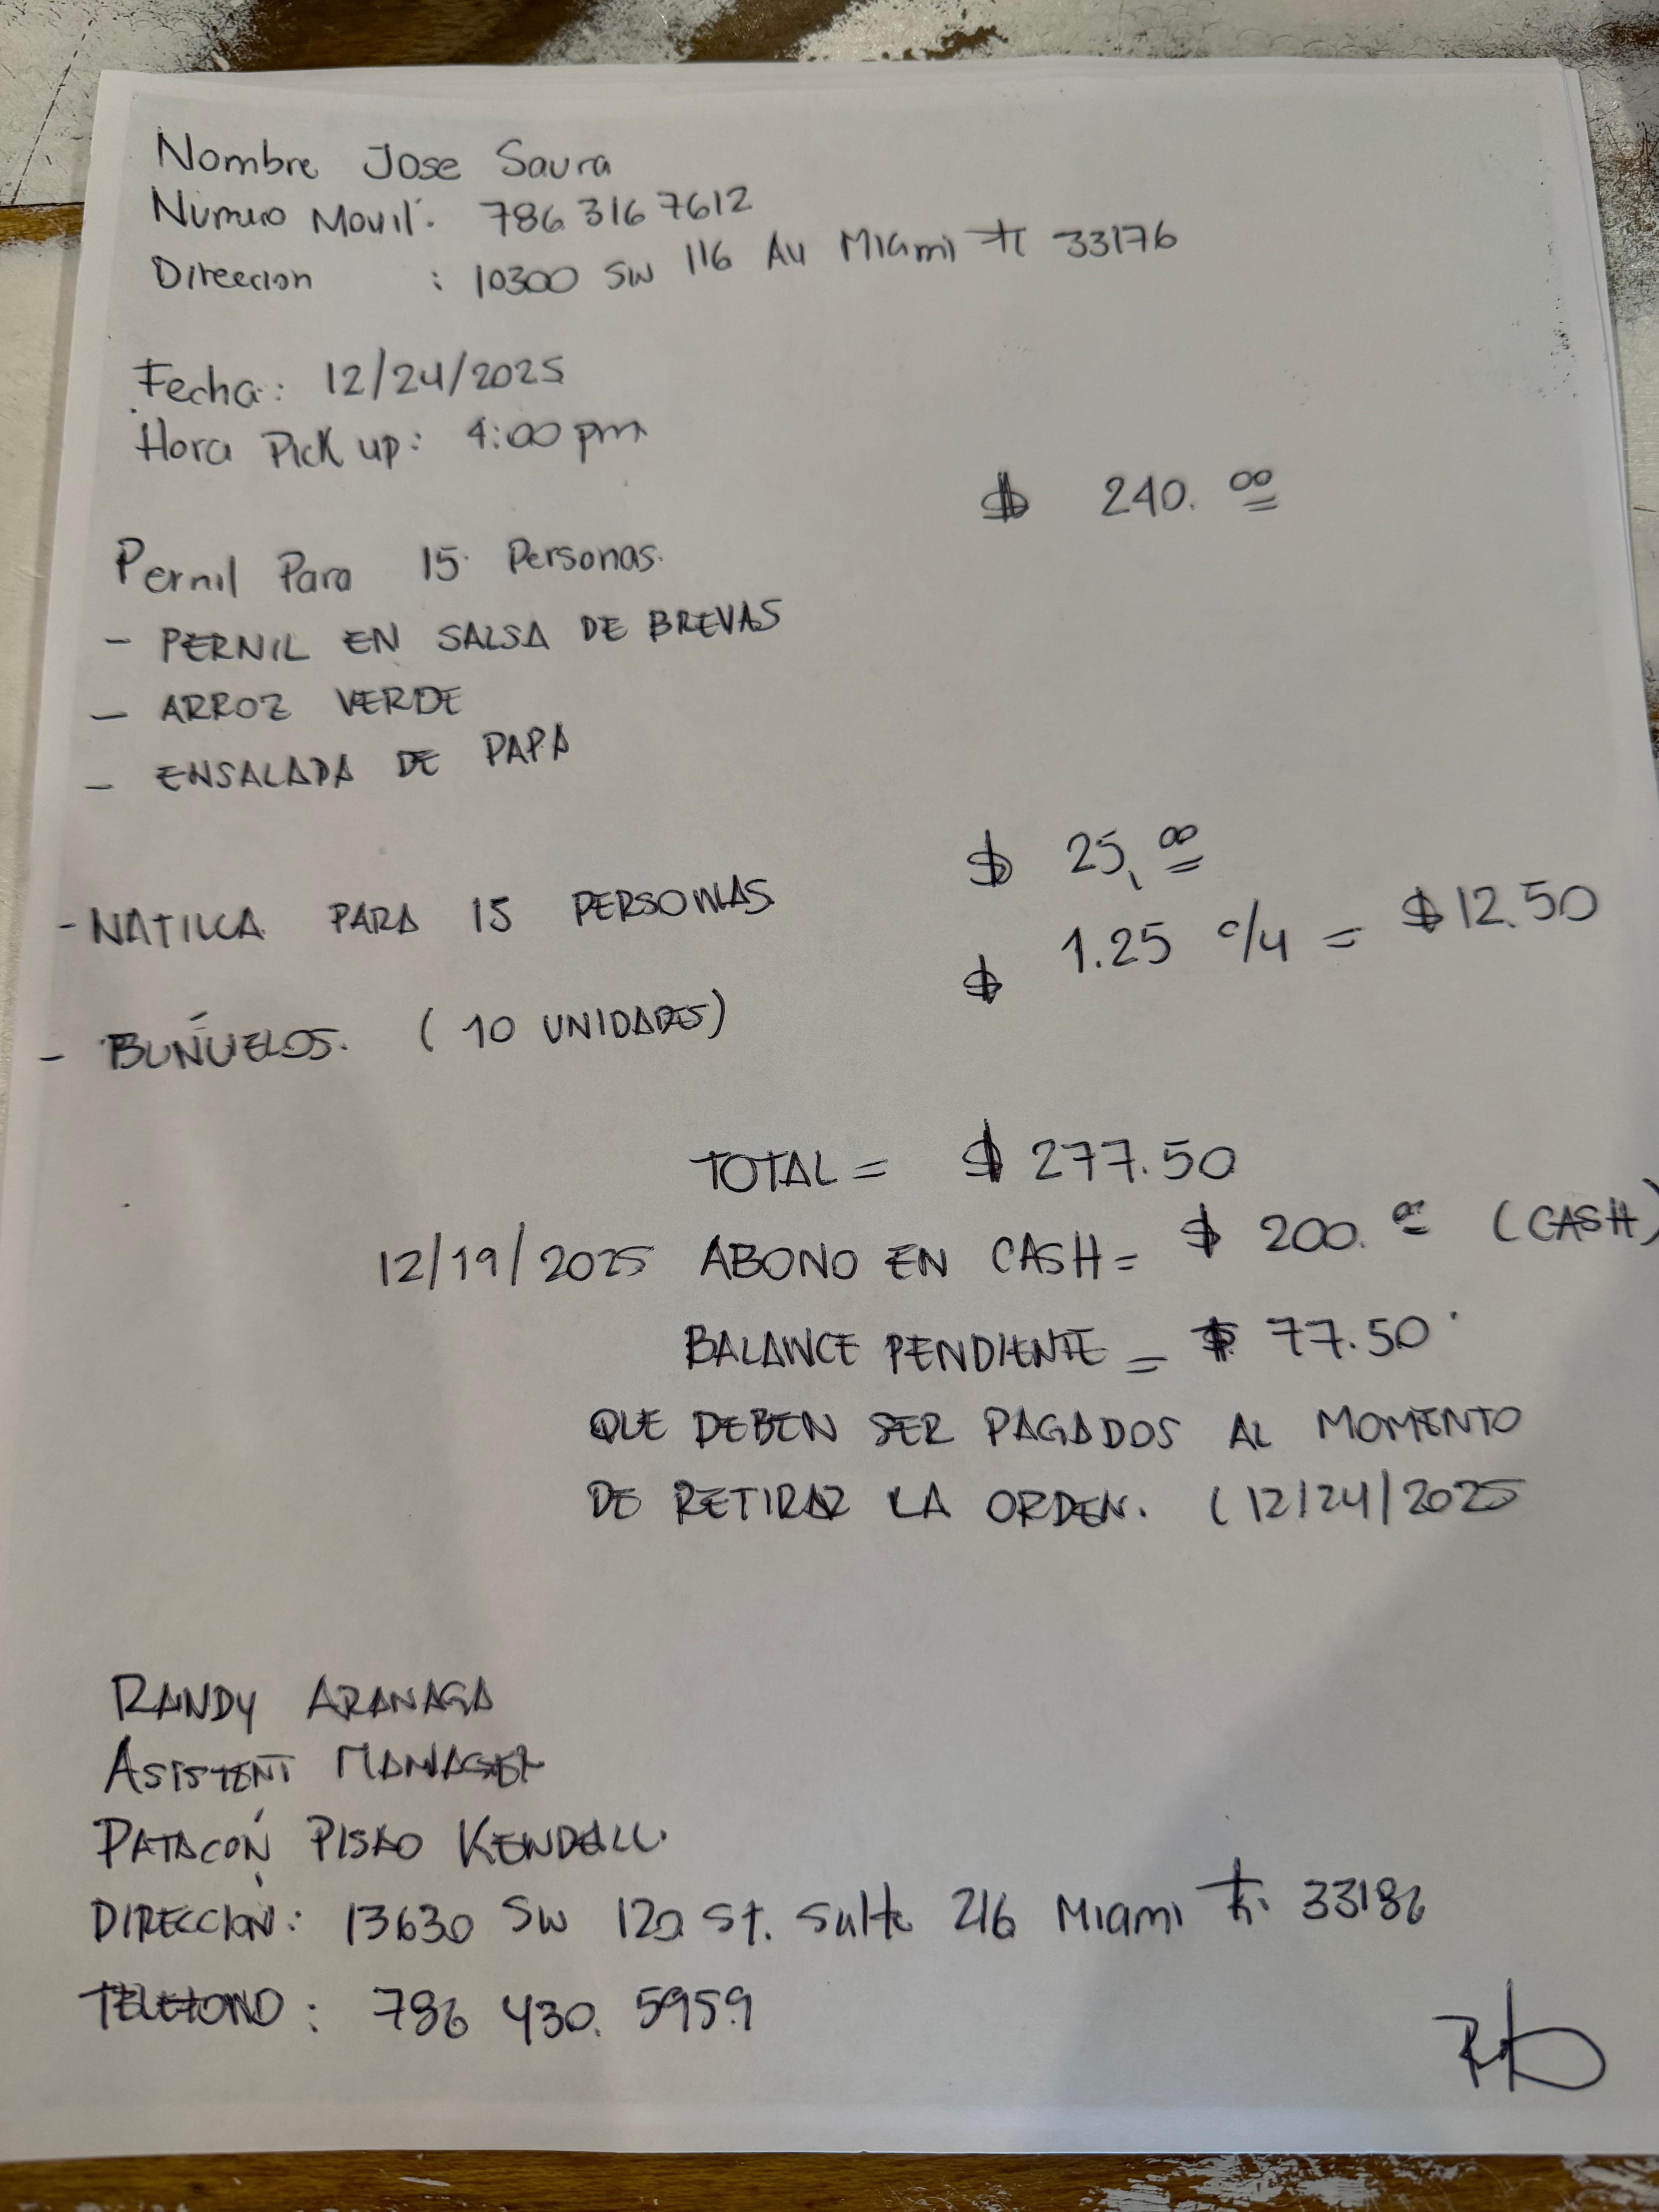 Nombre Jose Saura
Numero Movil: 786 316 7612
Direccion : 10300 SW 116 Av Miami FL 33176
Fecha: 12/24/2025
Hora Pick up: 4:00 pm
$ 240.00
Pernil Para 15 Personas.
- PERNIL EN SALSA DE BREVAS
- ARROZ VERDE
- ENSALADA DE PAPA
- NATILLA PARA 15 PERSONAS $ 25,00
- BUÑUELOS. (10 UNIDADES) $ 1.25 c/u = $12.50
TOTAL = $ 277.50
12/19/2025 ABONO EN CASH = $ 200.00 (CASH)
BALANCE PENDIENTE = $ 77.50
QUE DEBEN SER PAGADOS AL MOMENTO
DE RETIRAR LA ORDEN. (12/24/2025
RANDY ARANAGA
ASISTENT MANAGER
PATACÓN PISAO KENDALL.
DIRECCIÓN: 13630 SW 120 St. Suite 216 Miami FL. 33186
TELEFONO: 786 430. 5959